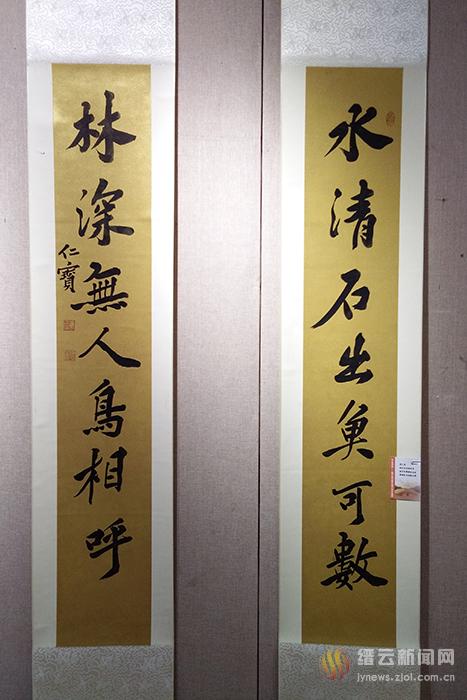 水清石出魚可數
林深無人鳥相呼
仁寶
缙云新闻网
jynews.zjol.com.cn